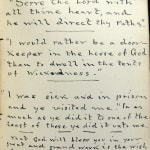 "Serve the Lord with
all thine heart, and
he will direct thy paths"
"I would rather be a door-
keeper in the house of God
than to dwell in the tents
of wickedness."
"I was sick and in prison
and ye visited me "In as
much as ye did it to one of the
least of these ye did it unto me
That God will bless you in your
great and grand work is the wish